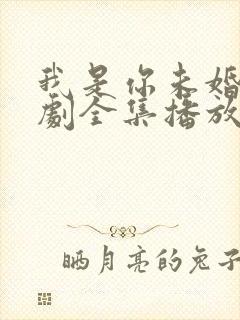 我是你未婚
劇全集播放
晒月亮的兔子